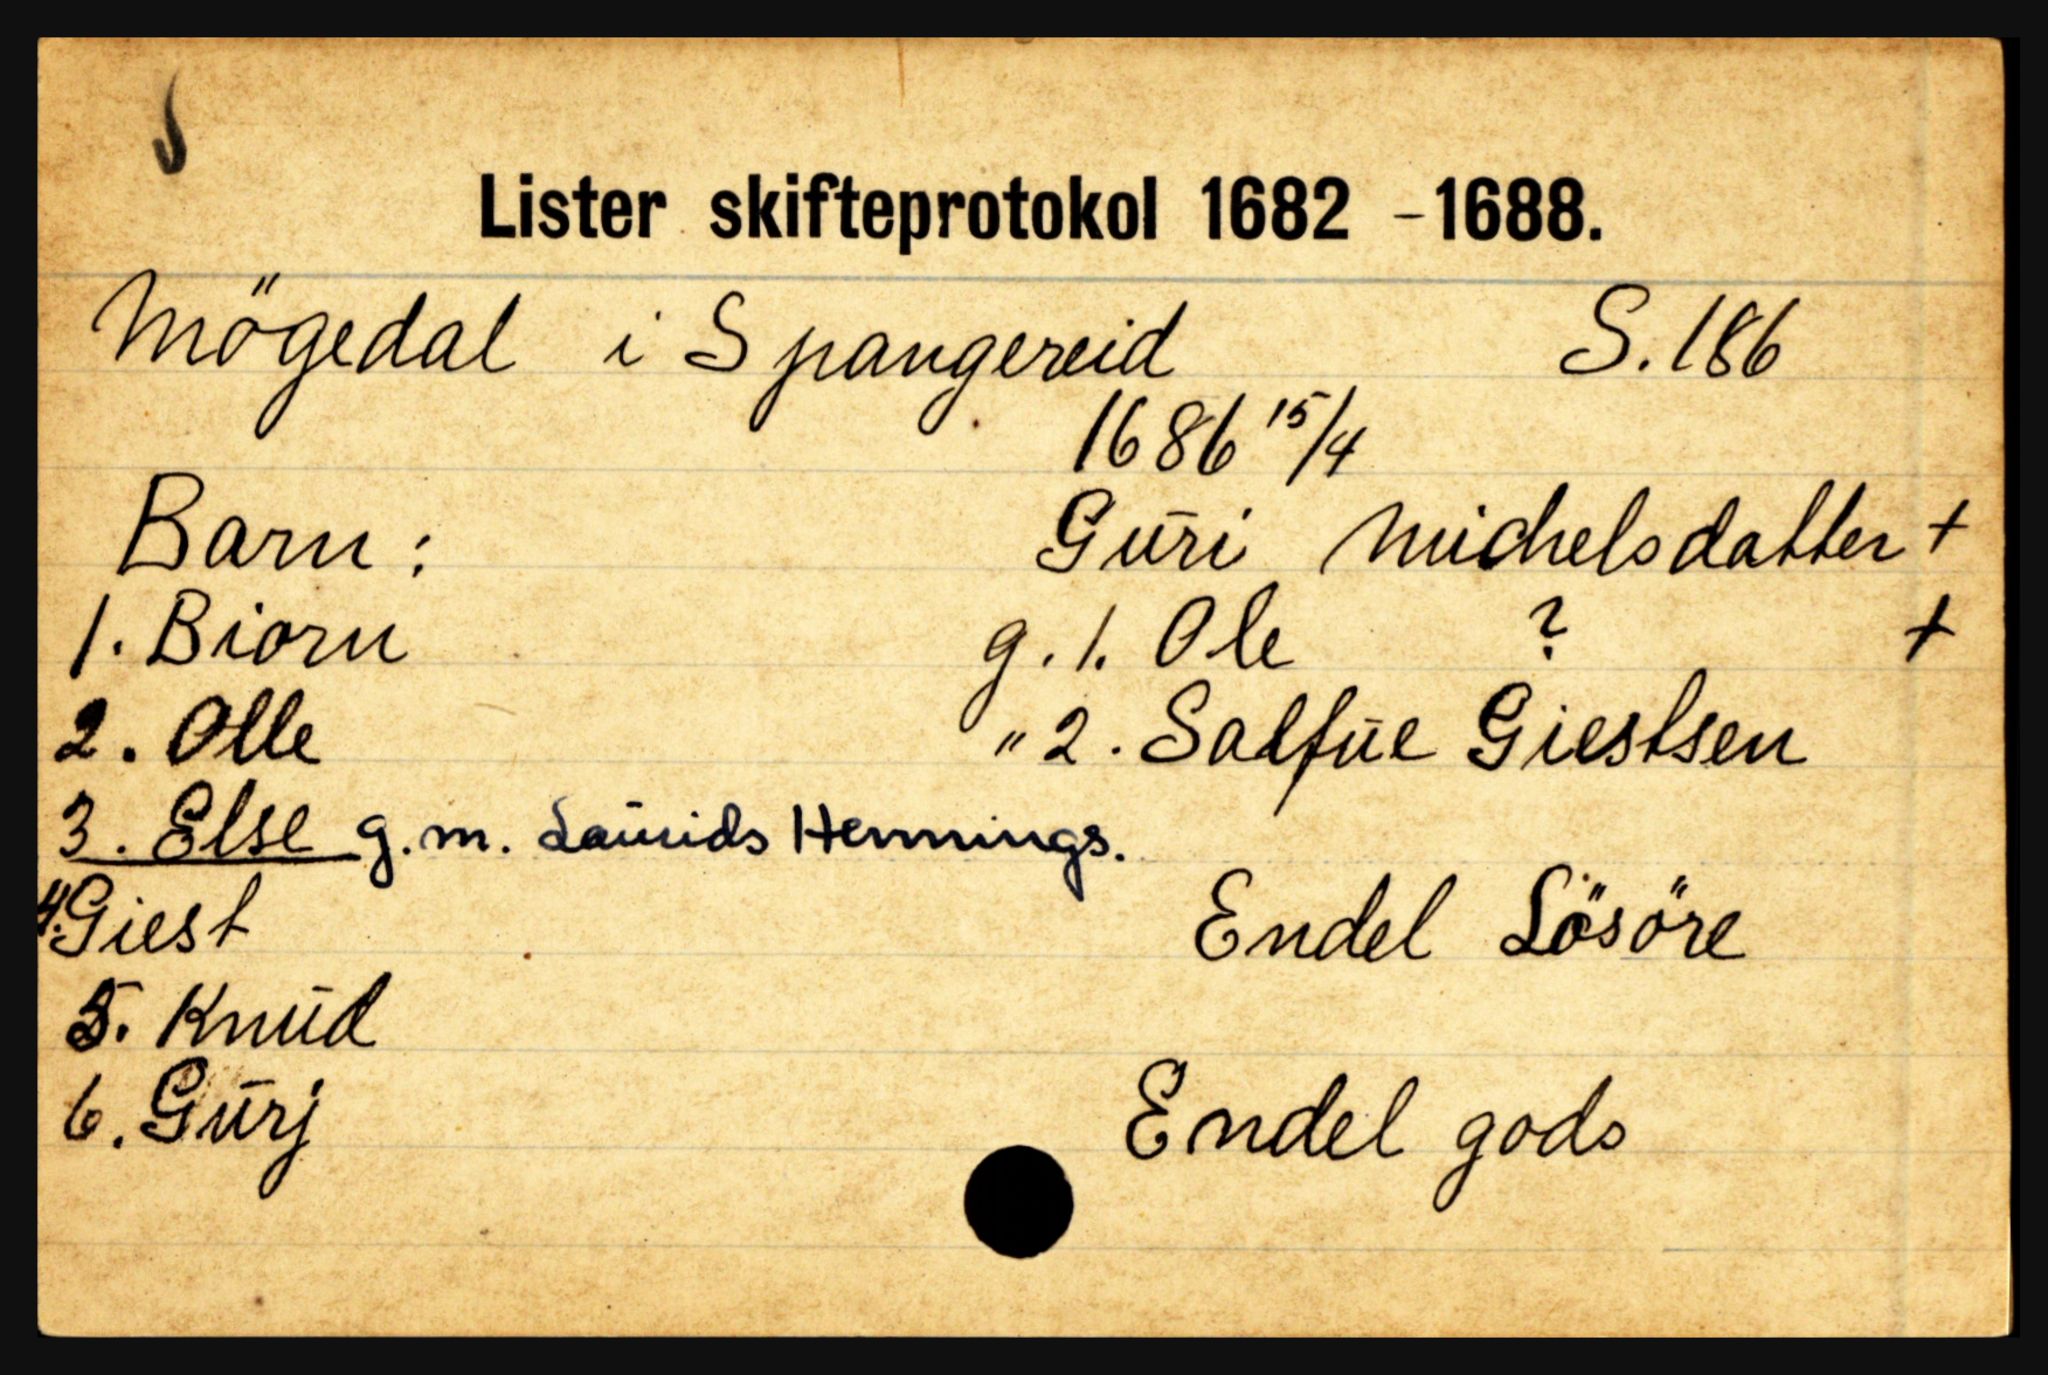 Lister skifteprotokol 1682 - 1688.
Mögedal i Spangereid S. 186
1686 15/4
Barn: Guri Michelsdatter +
1. Biorn g. 1. Ole ? +
2. Olle " 2. Salfue Giestsen
3. Else g. m. Laurids Hennings.
4. Giest Endel Lösöre
5. Knud
6. Gurj Endel gods